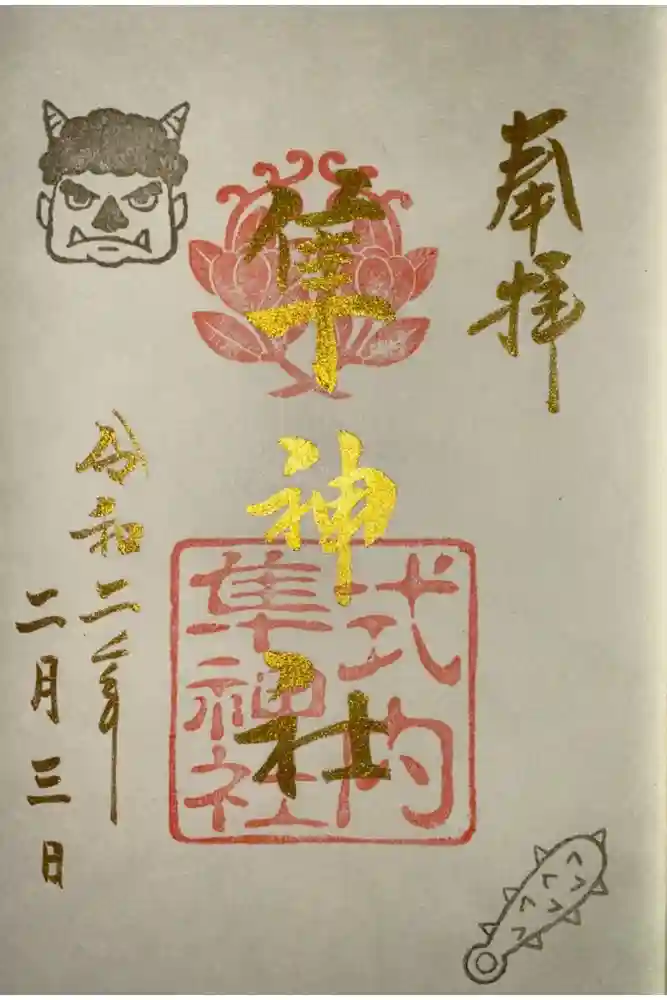 奉拝
隼神社
式内
隼神社
令和二年
二月三日